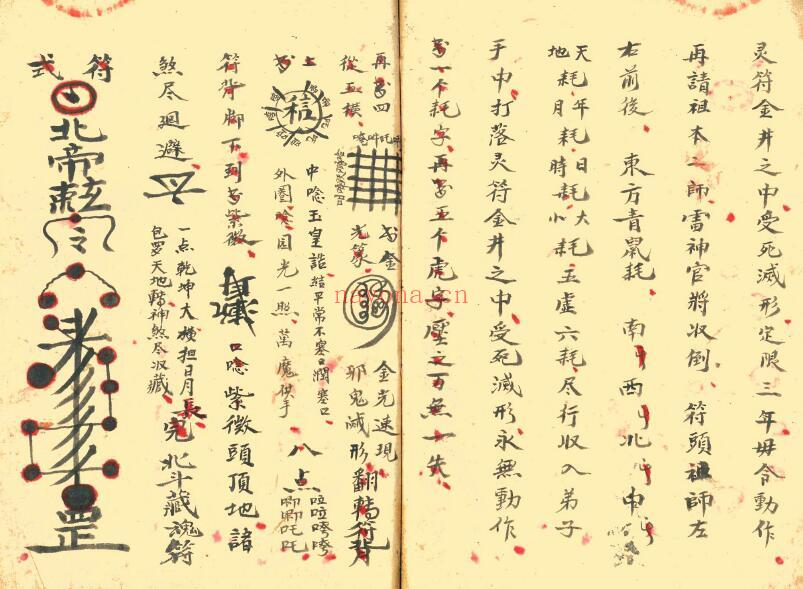 灵符金井之中受死滅形定限三年毋令動作
再請祖本二師雷神官將收倒 符頭祖師左
右前後 東方青鼠耗 南 西 北 中
天年日大
地耗月耗時耗小耗五虚六耗尽行収入弟子
手中打落灵符金井之中受死滅形永無動作
書一个耗字再書五个虎字壓之万無一失
再書四
從五横
書金
光篆
金光速現
邪鬼滅形
翻轉符背
上
書
信
中唸玉皇誥
外圈唸圓光一照萬魔拱手
八点
符背脚下到書紫微
口唸紫微頭頂地諸
煞尽廻避
一点乾坤大横担日月長
包罗天地轉神煞尽収藏
完北斗藏魂符
符式
北帝敕令
罡
nayona.cn